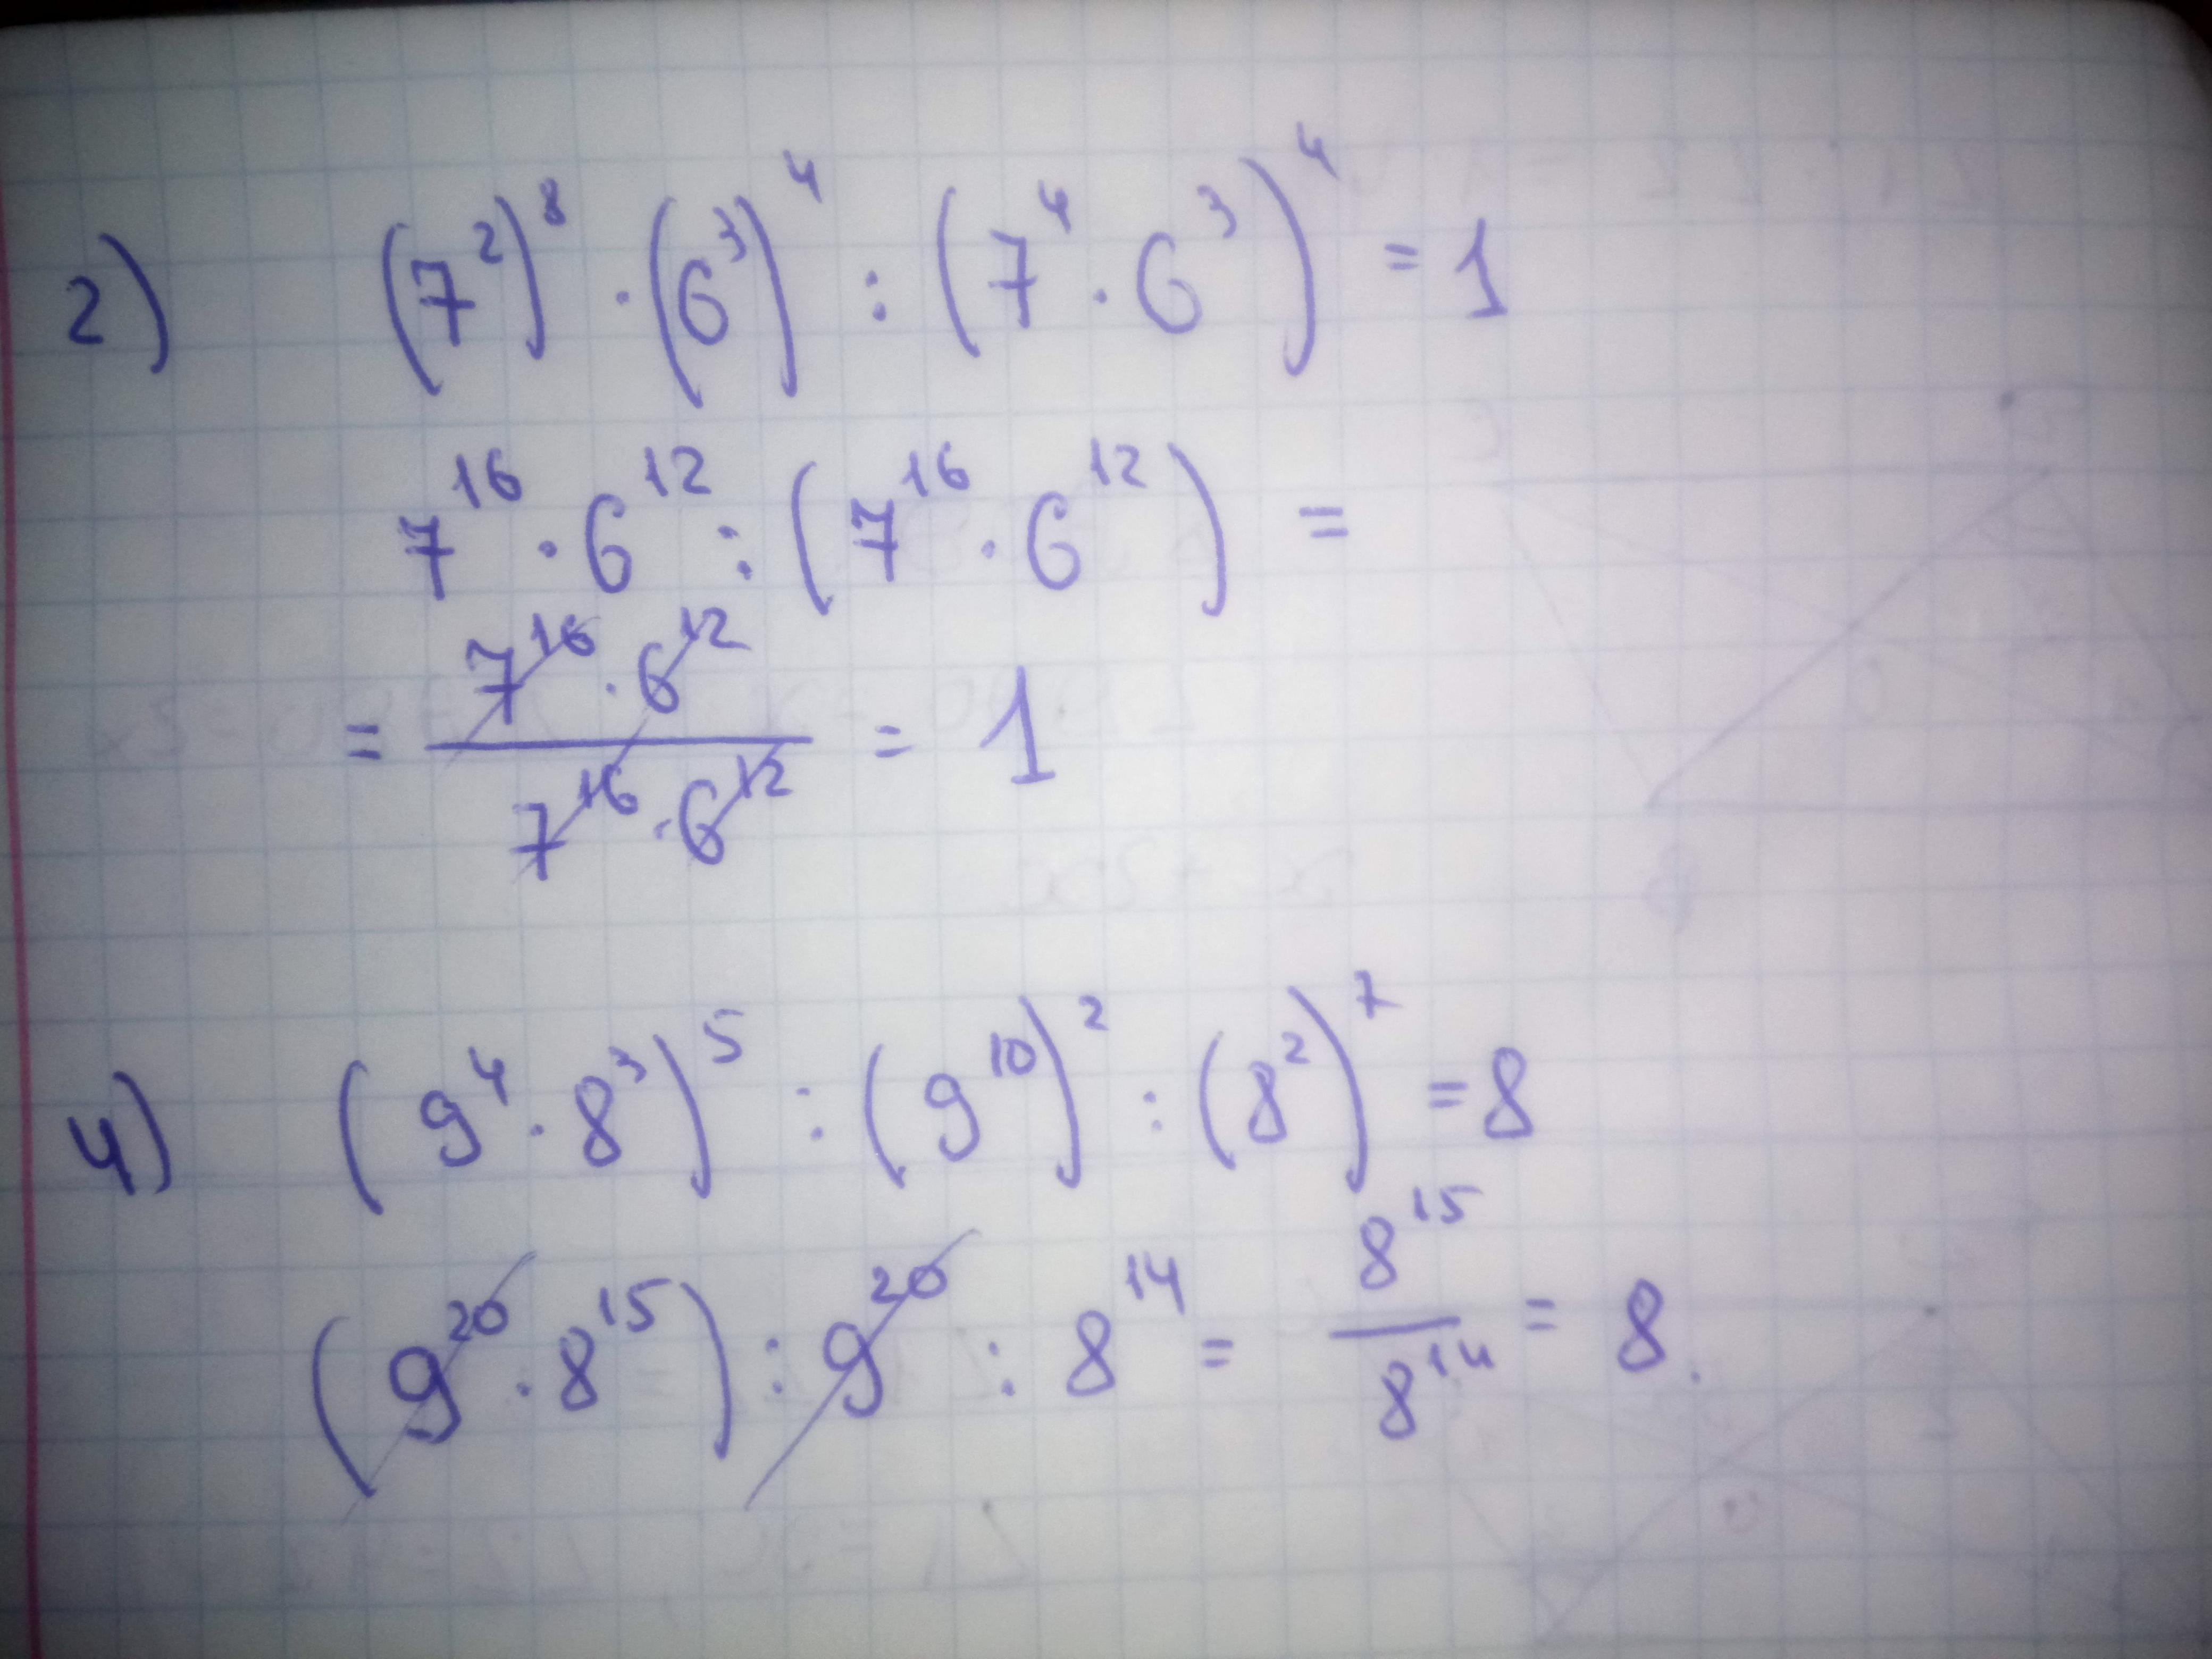 2) (7²)⁸ · (6³)⁴ : (7⁴ · 6³)⁴ = 1
7¹⁶ · 6¹² : (7¹⁶ · 6¹²) =
= 7¹⁶ · 6¹² / 7¹⁶ · 6¹² = 1
4) (9⁴ · 8³)⁵ : (9¹⁰)² : (8²)⁷ = 8
(9²⁰ · 8¹⁵) : 9²⁰ : 8¹⁴ = 8¹⁵ / 8¹⁴ = 8.